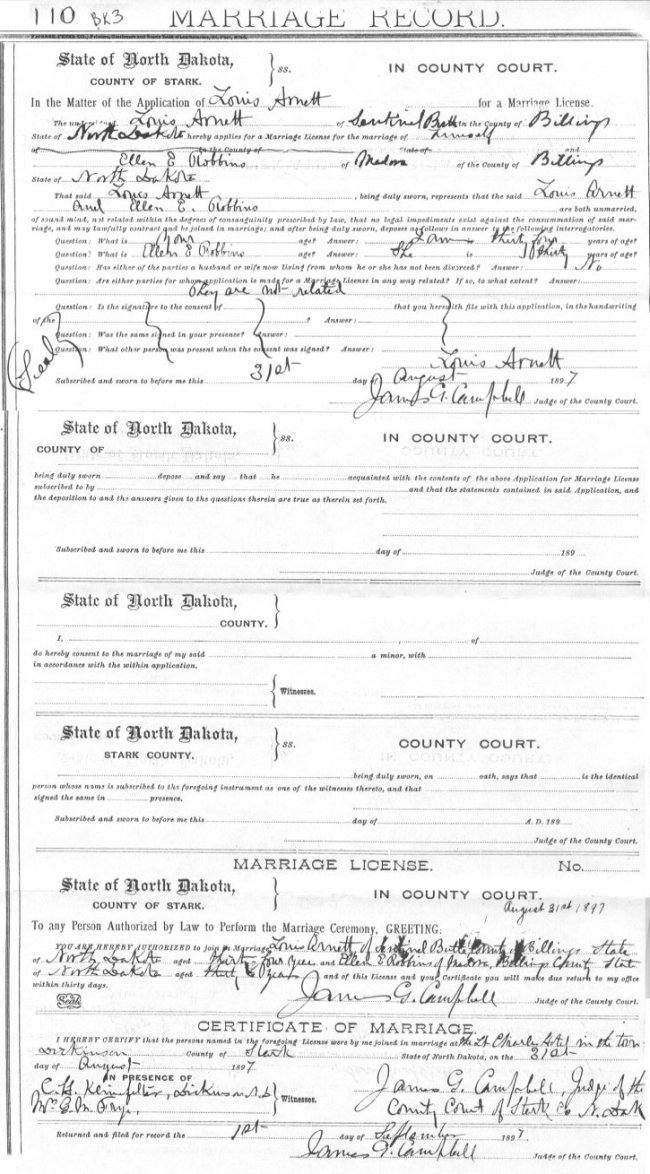 110 BK3 MARRIAGE RECORD.
State of North Dakota,
COUNTY OF STARK. } ss. IN COUNTY COURT.
In the Matter of the Application of Louis Arnett for a Marriage License.
The undersigned Louis Arnett of Sentinel Butte in the County of Billings
State of North Dakota hereby applies for a Marriage License for the marriage of himself
of in the County of State of and
Ellen E Robbins of Medora of the County of Billings
State of North Dakota
That said Louis Arnett, being duly sworn, represents that the said Louis Arnett
And Ellen E. Robbins are both unmarried,
of sound mind, not related within the degrees of consanguinity prescribed by law, that no legal impediments exist against the consummation of said mar-
riage, and may lawfully contract and be joined in marriage; and after being duly sworn, deposes as follows in answer to the following interrogatories.
Question: What is your age? Answer: I am thirty four years of age?
Question: What is Ellen E Robbins age? Answer: She is thirty years of age?
Question: Has either of the parties a husband or wife now living from whom he or she has not been divorced? Answer: No
Question: Are either parties for whom application is made for a Marriage License in any way related? If so, to what extent? Answer:
They are not related
Question: Is the signature to the consent of that you herewith file with this application, in the handwriting
of the ? Answer:
Question: Was the same signed in your presence? Answer:
Question: What other person was present when the consent was signed? Answer:
(Seal) Louis Arnett
Subscribed and sworn to before me this 31st day of August 1897
James G. Campbell Judge of the County Court.
State of North Dakota,
COUNTY OF } ss. IN COUNTY COURT.
being duly sworn depose and say that he acquainted with the contents of the above Application for Marriage License
subscribed to by and that the statements contained in said Application, and
the deposition to and the answers given to the questions therein are true as therein set forth.
Subscribed and sworn to before me this day of 189
Judge of the County Court.
State of North Dakota,
COUNTY. }
I, , of
do hereby consent to the marriage of my said a minor, with
in accordance with the within application.
{ Witnesses.
State of North Dakota,
STARK COUNTY. } ss. COUNTY COURT.
being duly sworn, on oath, says that is the identical
person whose name is subscribed to the foregoing instrument as one of the witnesses thereto, and that
signed the same in presence.
Subscribed and sworn to before me this day of A.D. 189
Judge of the County Court.
MARRIAGE LICENSE. No.
State of North Dakota,
COUNTY OF STARK. } ss. IN COUNTY COURT.
August 31st 1897
To any Person Authorized by Law to Perform the Marriage Ceremony, GREETING:
YOU ARE HEREBY AUTHORIZED to join in Marriage Louis Arnett of Sentinel Butte County of Billings State
of North Dakota aged thirty four years and Ellen E Robbins of Medora, Billings County State
of North Dakota aged thirty years and of this License and your Certificate you will make due return to my office
within thirty days.
Seal James G. Campbell Judge of the County Court.
CERTIFICATE OF MARRIAGE.
I HEREBY CERTIFY that the persons named in the foregoing License were by me joined in marriage at the St Charles Hotel in the town
Dickinson County of Stark State of North Dakota, on the 31st
day of August 1897.
IN PRESENCE OF
C. H. Klinefelter, Dickinson N.D James G. Campbell, Judge of the
Mrs G. M. Frye, } Witnesses. County Court of Stark Co N. Dak
Returned and filed for record the 1st day of September 1897.
James G Campbell Judge of the County Court.